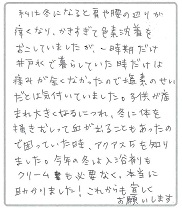 私は冬になると肩や腰の辺りが
痒くなり、かきすぎて色素沈着を
おこしていましたが、一時期だけ
井戸水で暮らしていた時だけは
痒みが全くなかったので塩素のせい
だとは気付いていました。子供が産
まれ大きくなるにつれ、冬に体を
掻きむしって血が出ることもあったの
で困っていた時、アクアス5を知り
ました。今年の冬は入浴剤も
クリームも必要なく、本当に
助かりました！これからも宜しく
お願いします